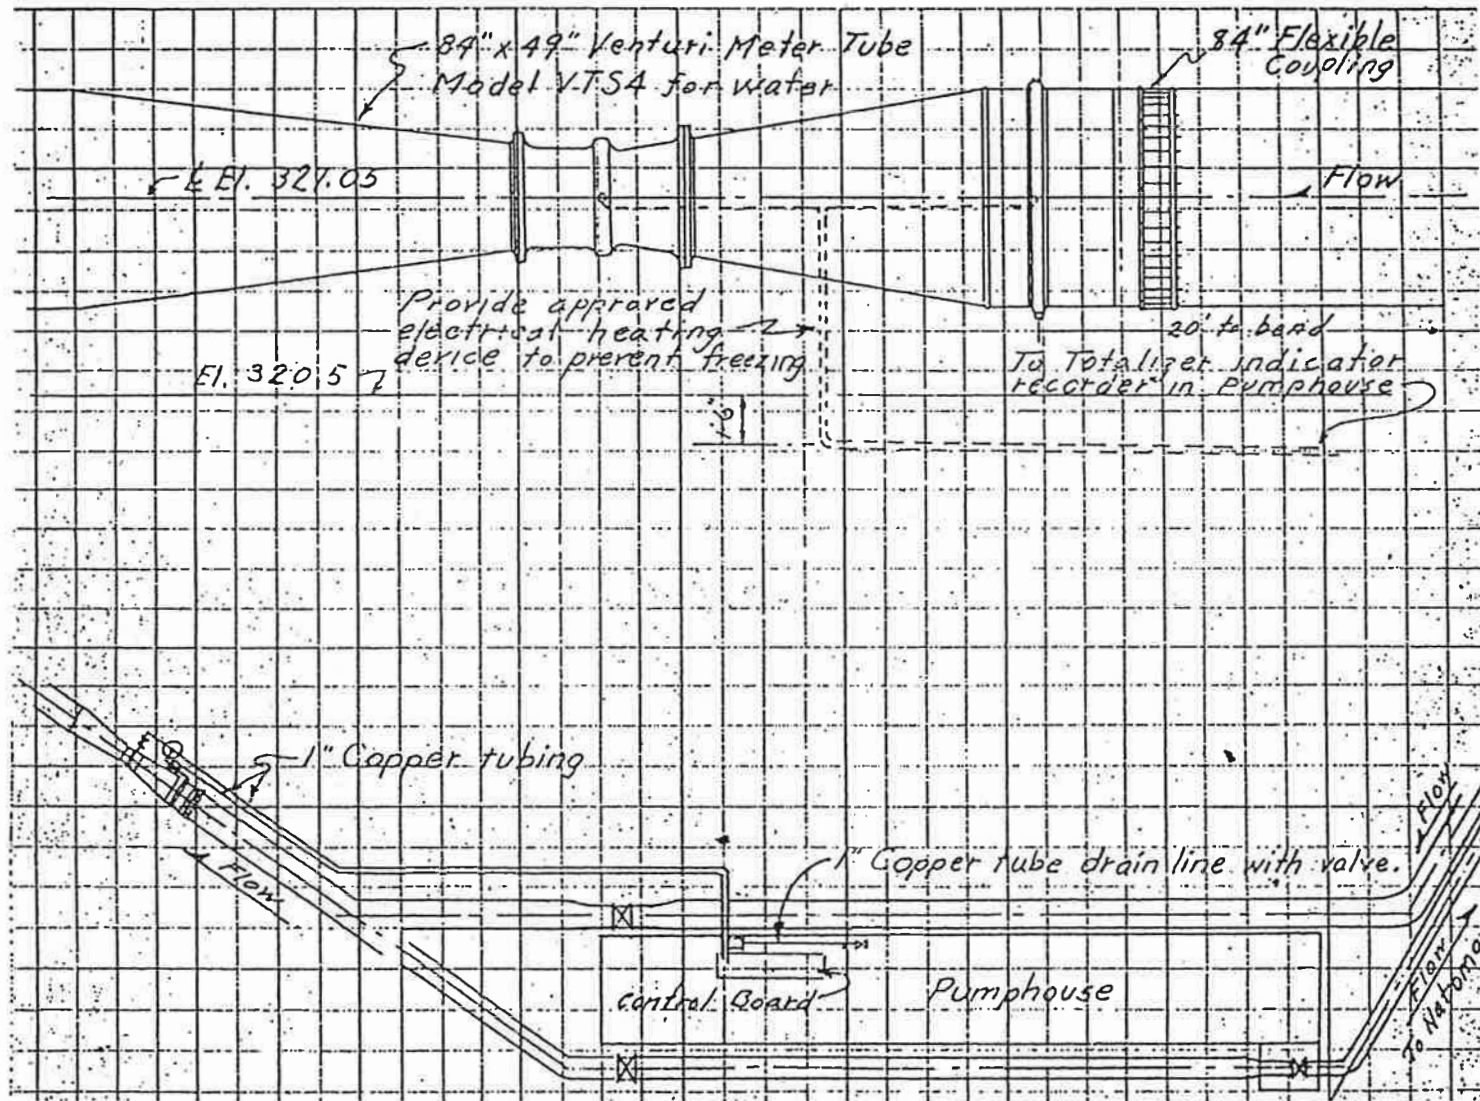 84" x 49" Venturi Meter Tube
Model VTS4 for water
84" Flexible
Coupling
℄ El. 321.05
Flow
Provide approved
electrical heating
device to prevent freezing
20' to bend
To Totalizer indicator
recorder in Pumphouse
El. 320.5
1'6"
1" Copper tubing
Flow
Flow
1" Copper tube drain line with valve.
Control Board
Pumphouse
Flow
To Natoma